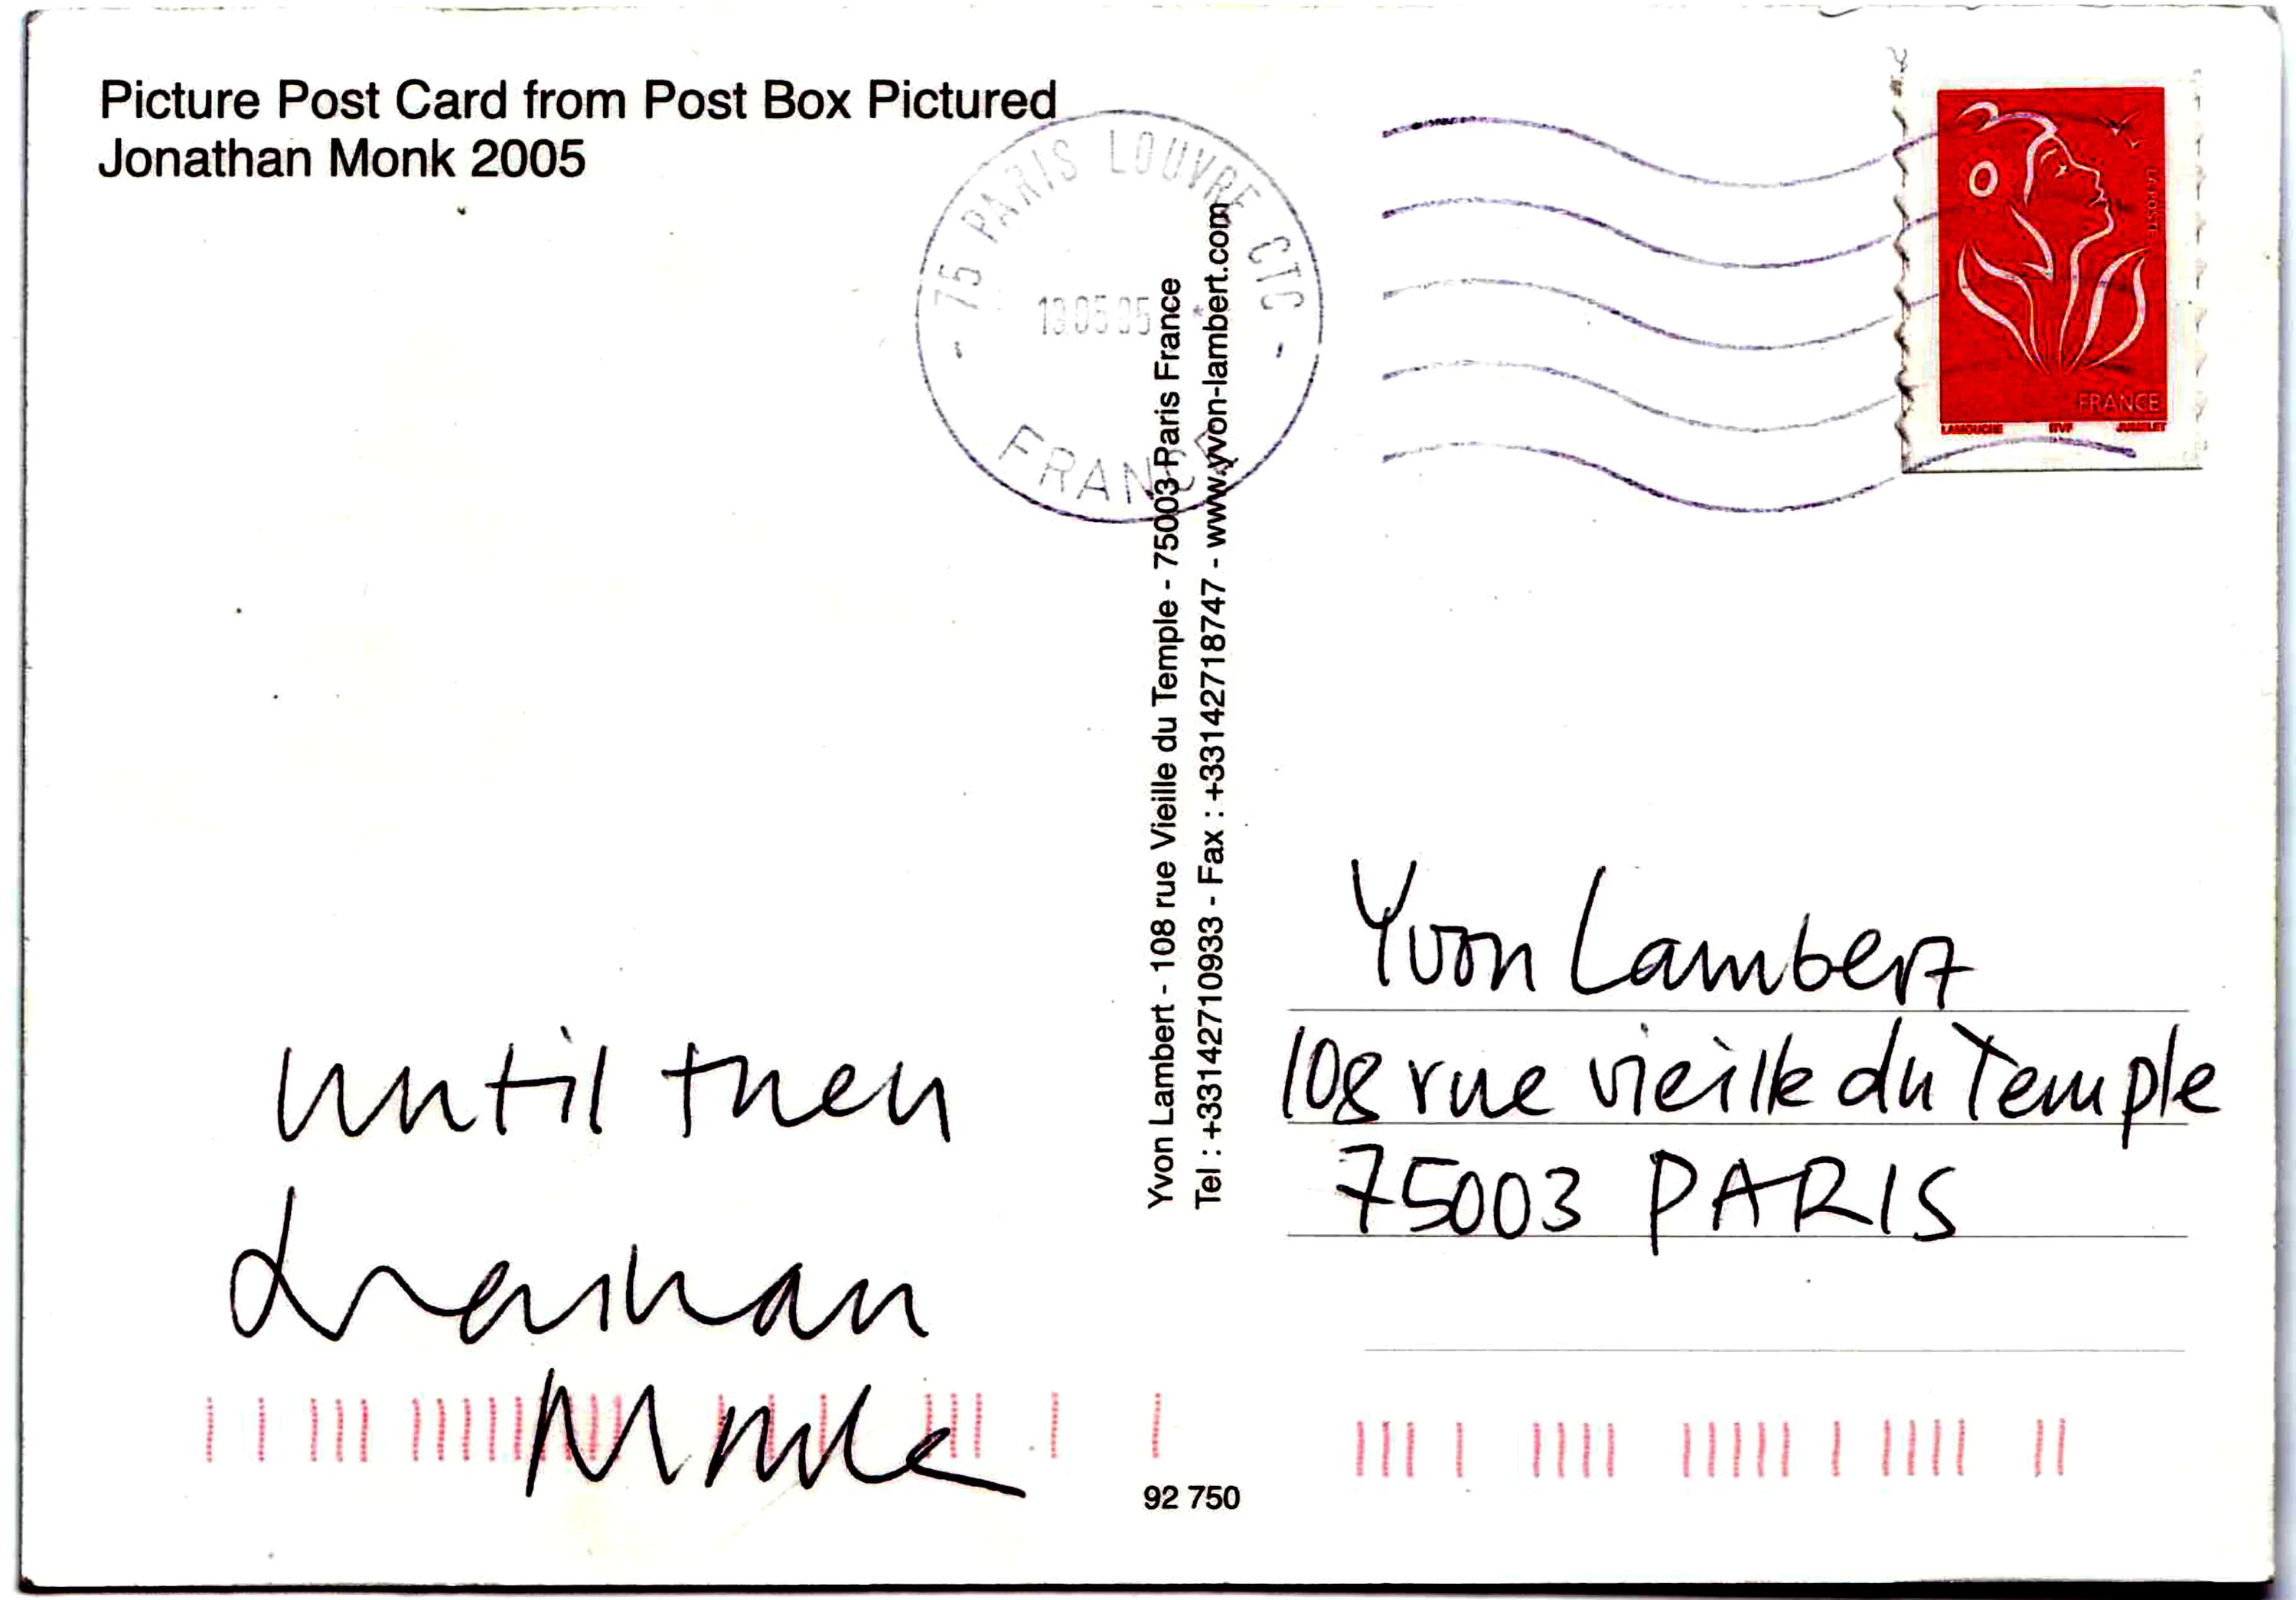 Picture Post Card from Post Box Pictured
Jonathan Monk 2005
75 PARIS LOUVRE CTC
13 05 05
FRANCE
FRANCE
LAMOUCHE ITVF JUMELET
Yvon Lambert - 108 rue Vieille du Temple - 75003 Paris France
Tel : +33142710933 - Fax : +33142718747 - www.yvon-lambert.com
until then
Jonathan
Monk
Yvon Lambert
108 rue vieille du Temple
75003 PARIS
92 750